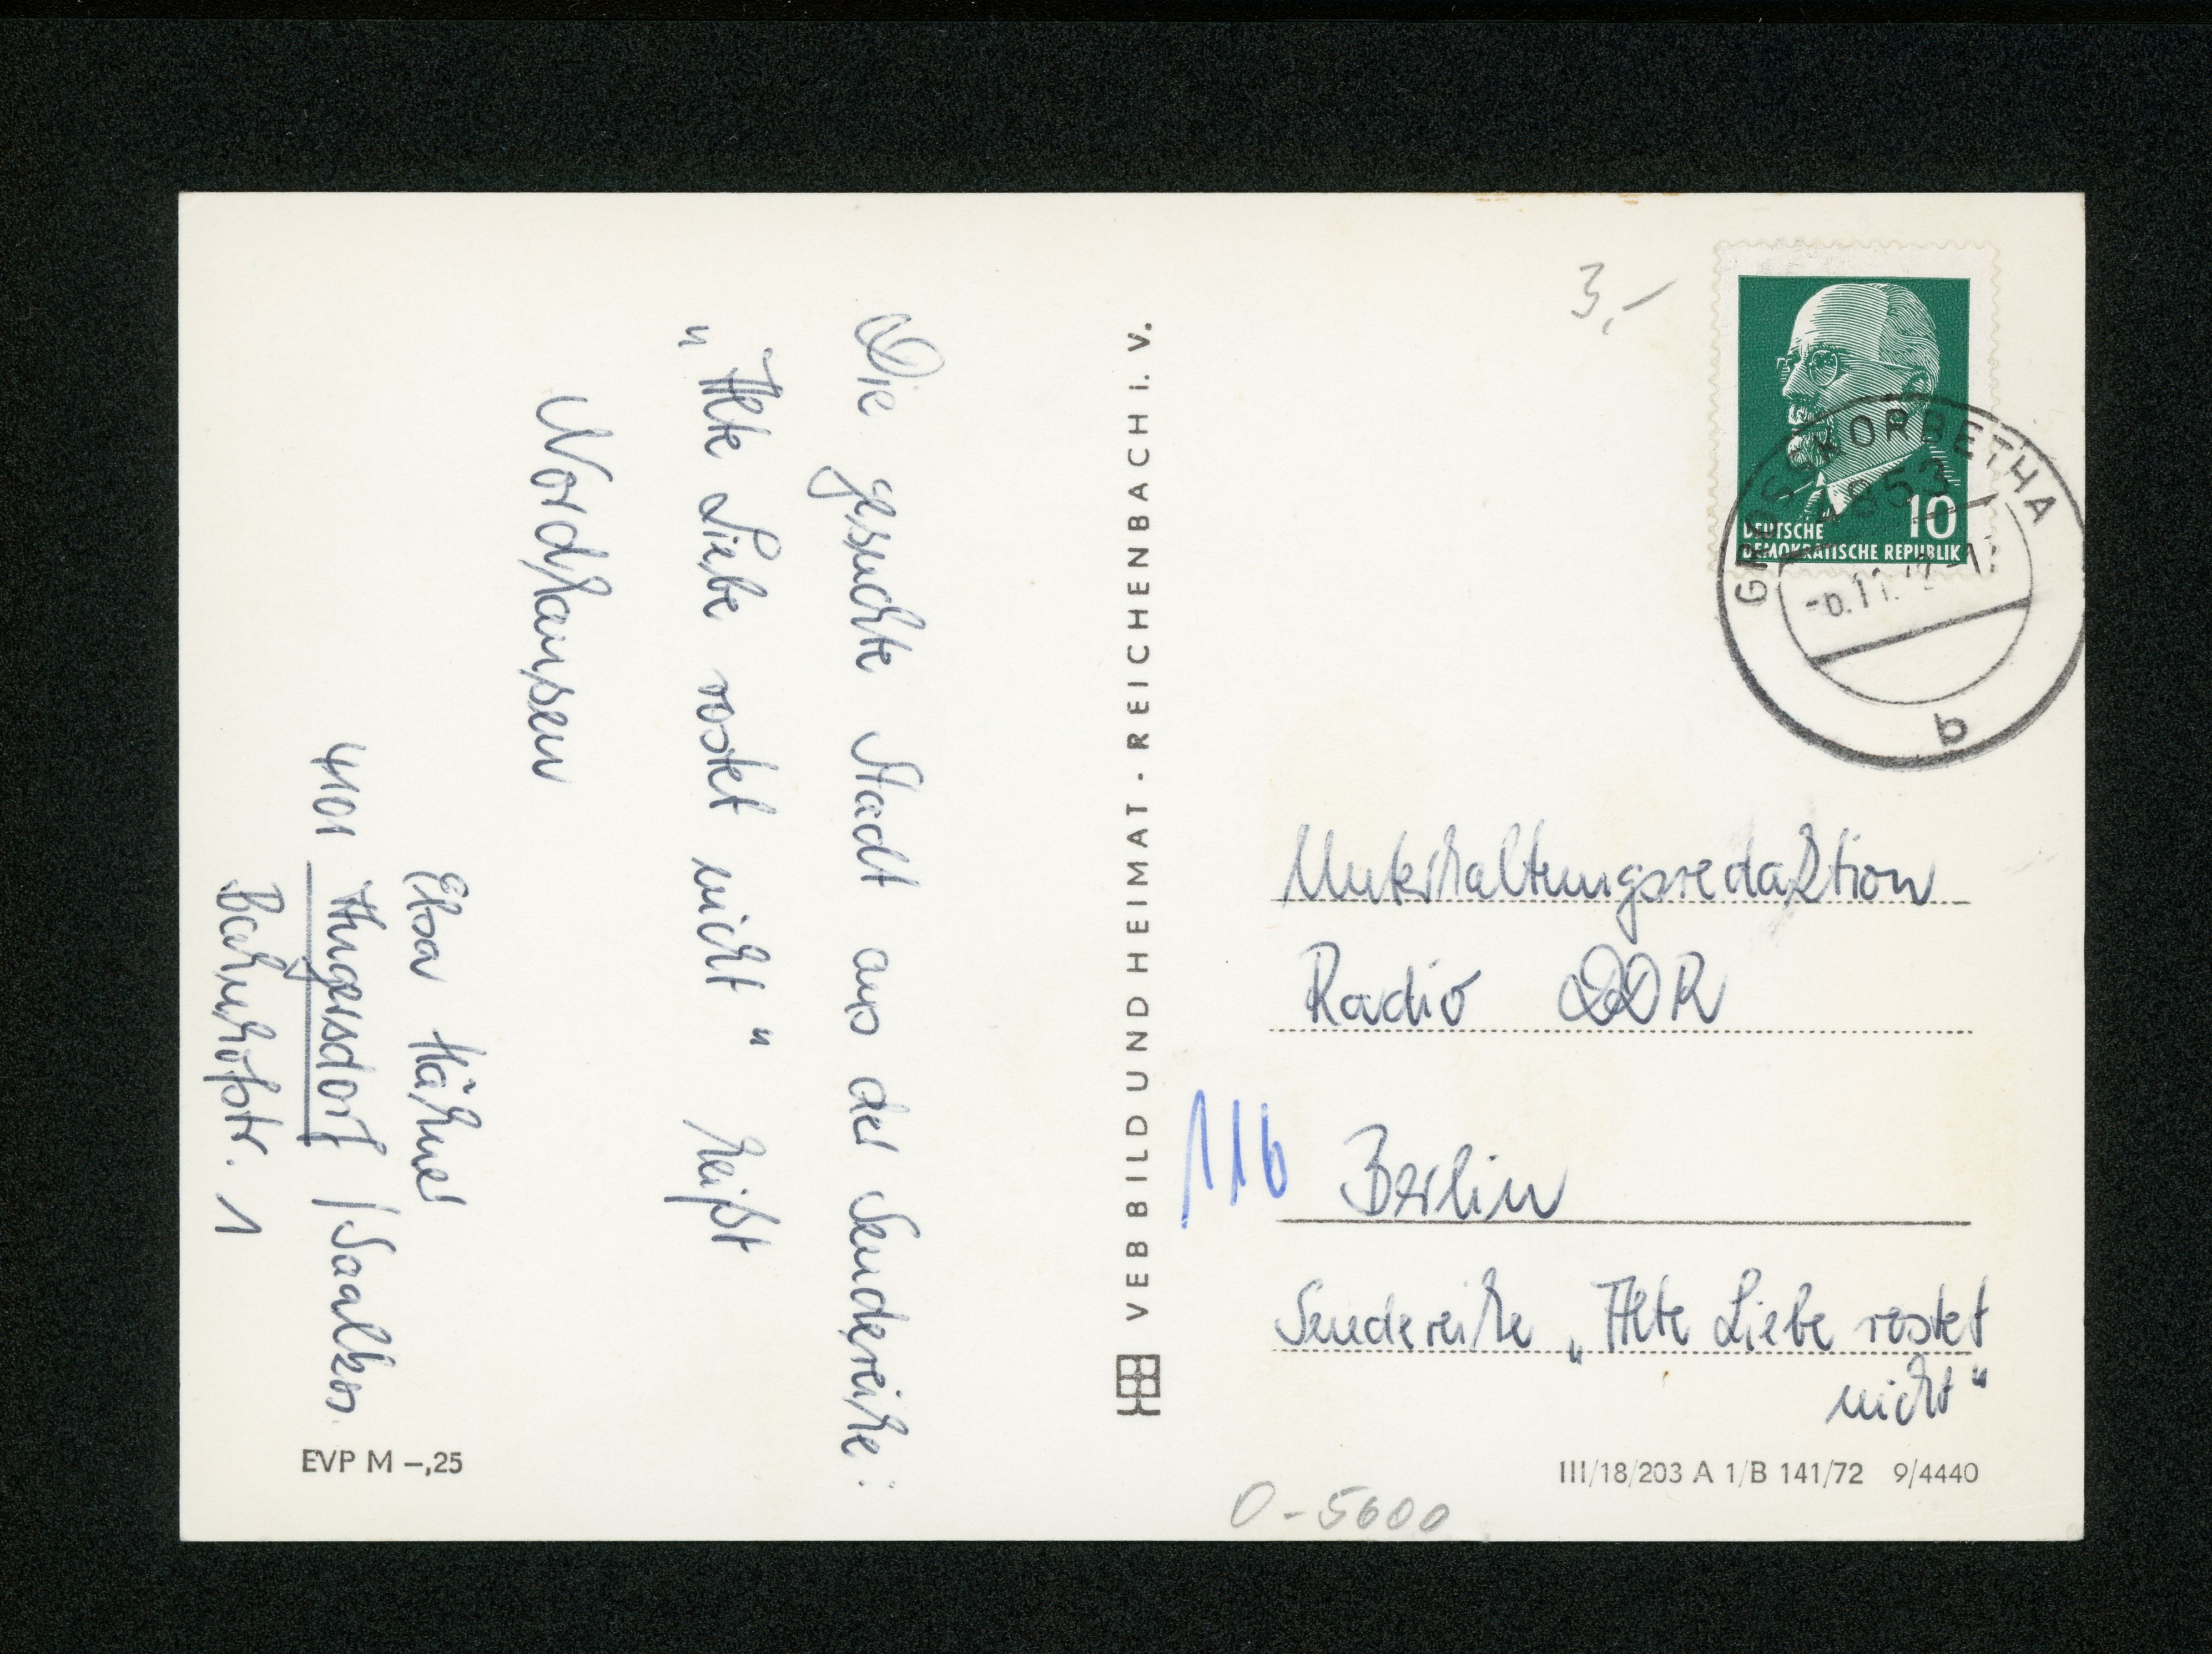 Die gesuchte Stadt aus der Sendereihe:
"Alte Liebe rostet nicht" heißt
Nordhausen
Elsa Hähner
4101 Angersdorf / Saalkrs.
Bahnhofstr. 1
EVP M –,25
VEB BILD UND HEIMAT · REICHENBACH i. V.
3,-
DEUTSCHE
DEMOKRATISCHE REPUBLIK
10
GROSSKORBETHA
4853
b
Unterhaltungsredaktion
Radio DDR
116 Berlin
Sendereihe „Alte Liebe rostet
nicht"
III/18/203 A 1/B 141/72 9/4440
0-5600